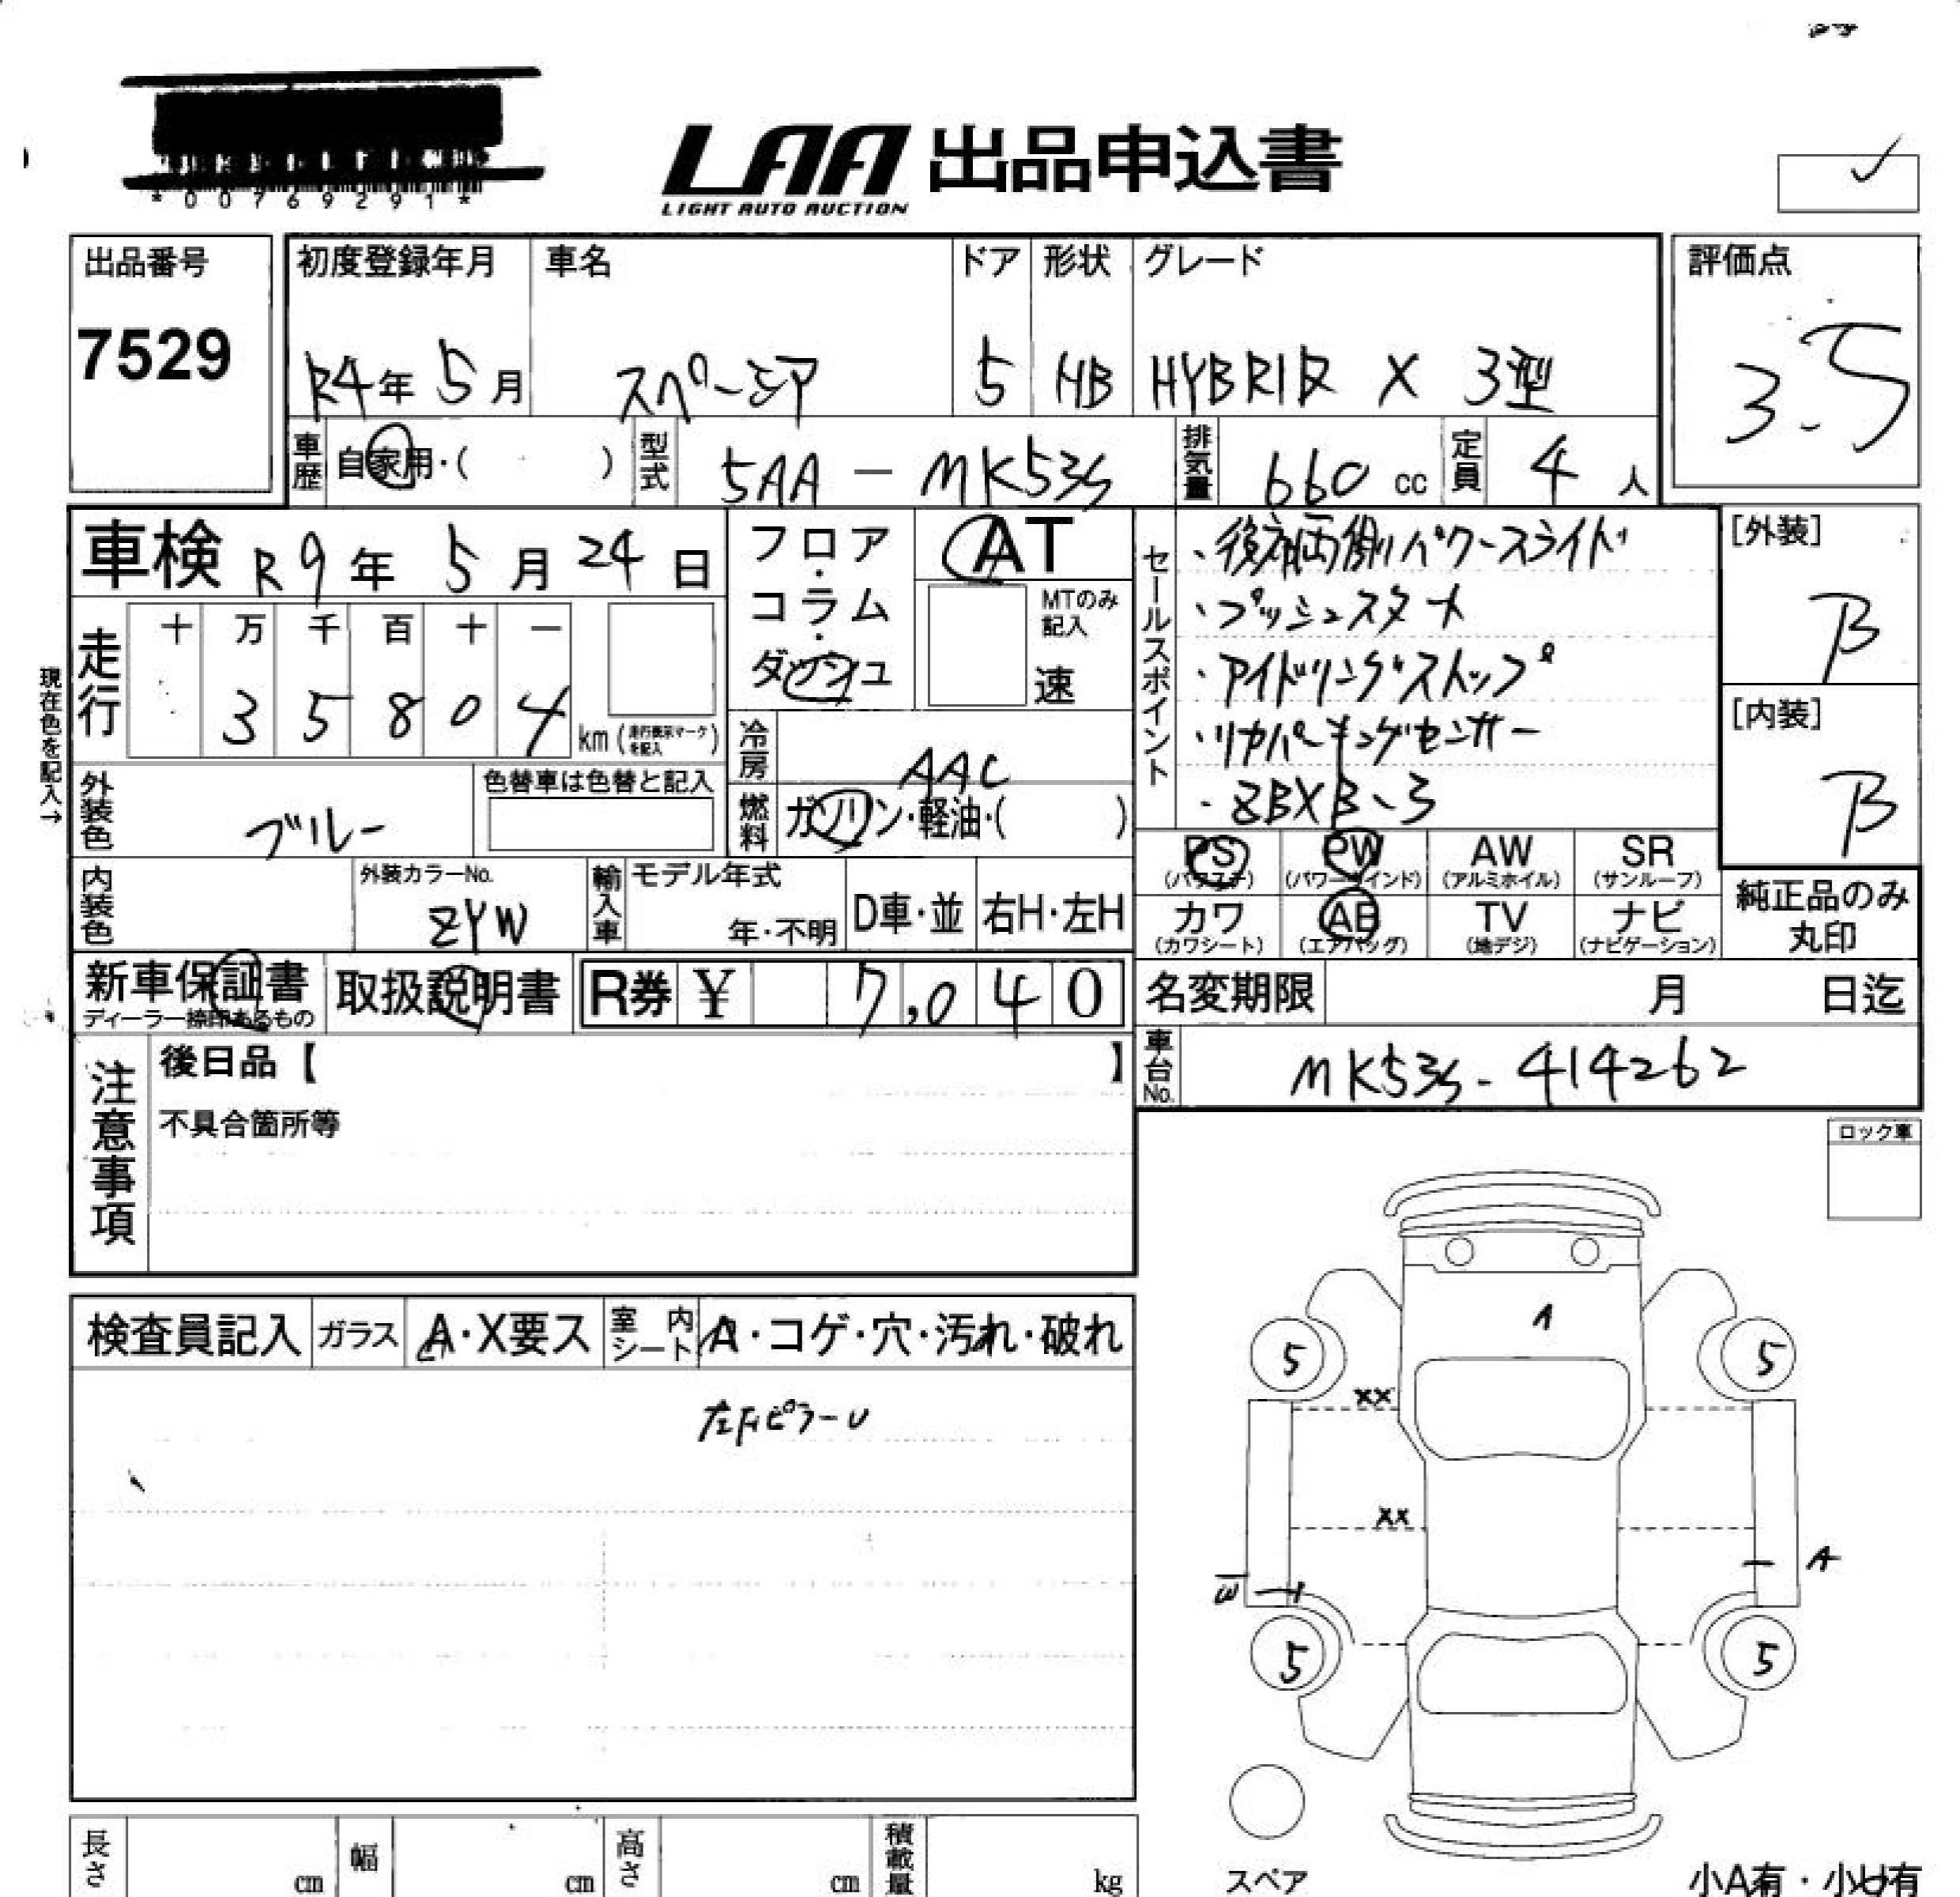 *00769291*
LAA 出品申込書
LIGHT AUTO AUCTION
出品番号
7529
初度登録年月
R4年 5月
車名
スペーシア
ドア
5
形状
HB
グレード
HYBRID X 3型
評価点
3.5
車歴 自家用・( )
型式 5AA - MK53S
排気量 660 cc
定員 4 人
車検 R9年 5月 24日
フロア・コラム・ダッシュ
AT
MTのみ記入
速
現在色を記入→
走行
十 万 千 百 十 一
3 5 8 0 4 km (走行表示マークを記入)
冷房 AAC
燃料 ガソリン・軽油・( )
外装色 ブルー
色替車は色替と記入
内装色
外装カラーNo.
ZYW
輸入車
モデル年式
年・不明
D車・並
右H・左H
セールスポイント
・後席両側パワースライド
・プッシュスタート
・アイドリングストップ
・リヤパーキングセンサー
・ZBXB-3
[外装]
B
[内装]
B
PS (パワステ)
PW (パワーウインド)
AW (アルミホイル)
SR (サンルーフ)
カワ (カワシート)
AB (エアバッグ)
TV (地デジ)
ナビ (ナビゲーション)
純正品のみ丸印
新車保証書
ディーラー捺印あるもの
取扱説明書
R券 ¥ 7,040
名変期限 月 日迄
車台No. MK53S-414262
注意事項
後日品【 】
不具合箇所等
ロック車
検査員記入
ガラス A・X要ス
室内シート A・コゲ・穴・汚れ・破れ
左FピラーU
A
5
5
XX
XX
A
W
5
5
スペア
小A有・小U有
長さ cm
幅 cm
高さ cm
積載量 kg